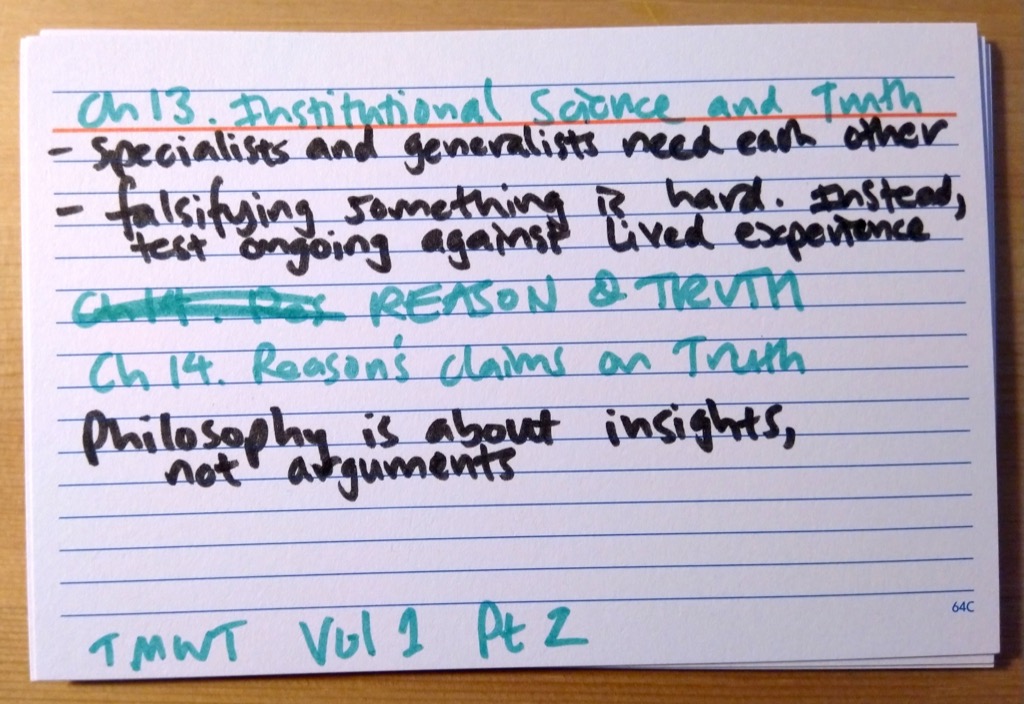 Ch 13. Institutional Science and Truth
- specialists and generalists need each other
- falsifying something is hard. Instead,
test ongoing against lived experience
Ch 14. Res REASON & TRUTH
Ch 14. Reason's claims on Truth
Philosophy is about insights,
not arguments
64C
TMWT Vol 1 Pt 2